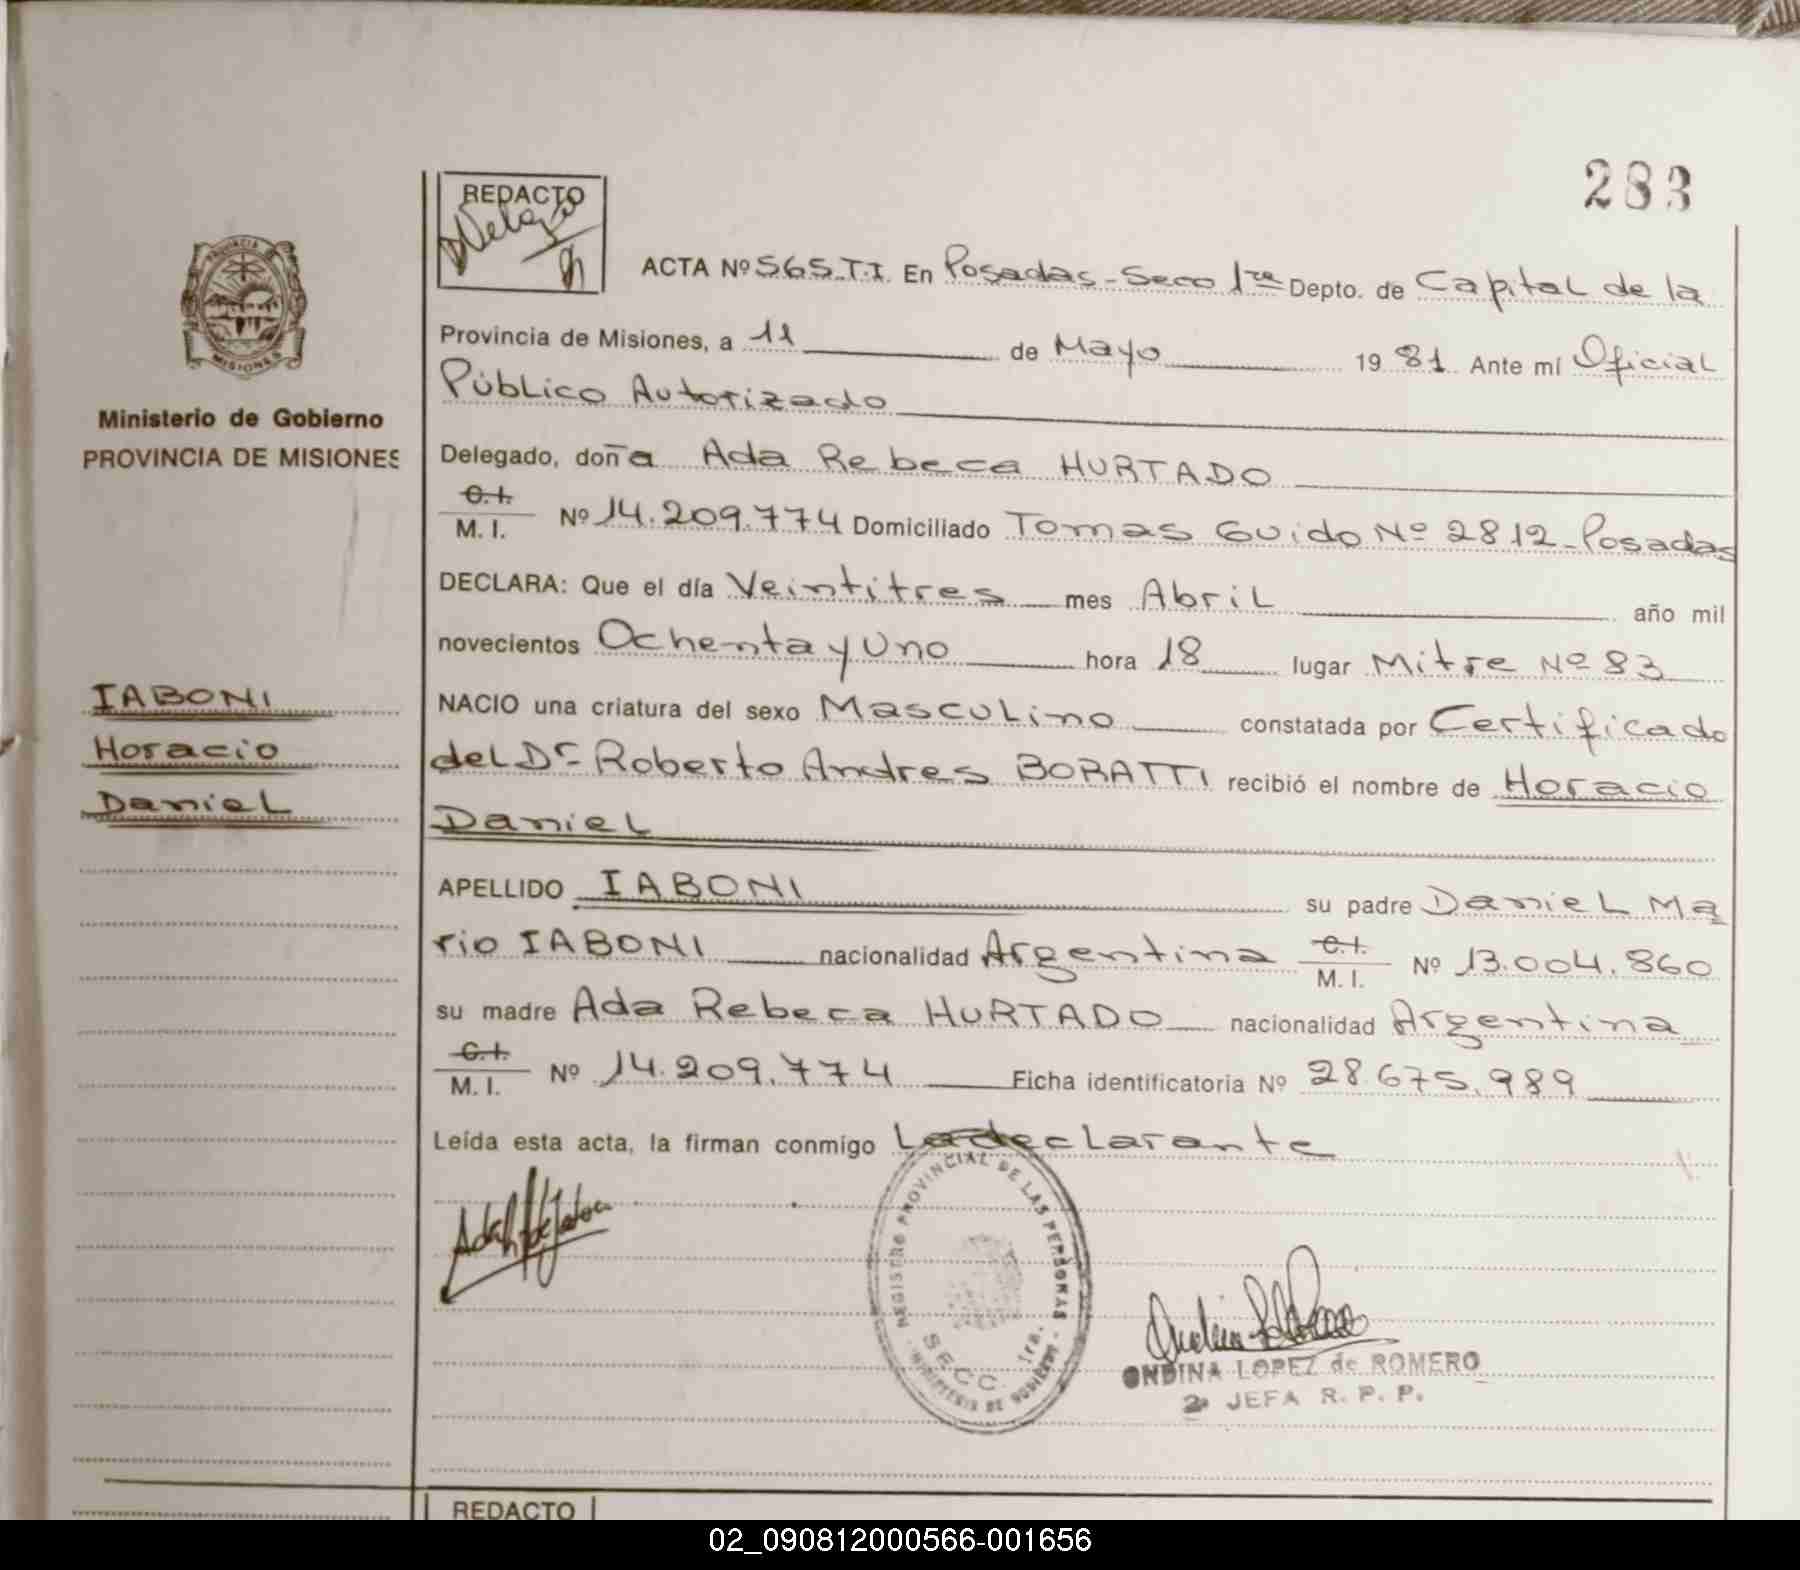 283
REDACTO
PROVINCIA
MISIONES
Ministerio de Gobierno
PROVINCIA DE MISIONES
ACTA Nº 565.T.I. En Posadas-Secc 1ra Depto. de Capital de la
Provincia de Misiones, a 11 de Mayo 1981 Ante mí Oficial
Público Autorizado
Delegado, doña Ada Rebeca HURTADO
C.I.
M. I. Nº 14.209.774 Domiciliado Tomas Guido Nº 2812-Posadas
DECLARA: Que el día Veintitres mes Abril año mil
novecientos Ochenta y Uno hora 18 lugar Mitre Nº 83
IABONI
Horacio
Daniel
NACIO una criatura del sexo Masculino constatada por Certificado
del Dr. Roberto Andres BORATTI recibió el nombre de Horacio
Daniel
APELLIDO IABONI su padre Daniel Ma
rio IABONI nacionalidad Argentina C.I. M. I. Nº 13.004.860
su madre Ada Rebeca HURTADO nacionalidad Argentina
C.I.
M. I. Nº 14.209.774 Ficha identificatoria Nº 28.675.989
Leída esta acta, la firman conmigo La declarante
REGISTRO PROVINCIAL DE LAS PERSONAS
SECC. 1ra.
MINISTERIO DE GOBIERNO
ONDINA LOPEZ de ROMERO
2º JEFA R. P. P.
REDACTO
02_090812000566-001656